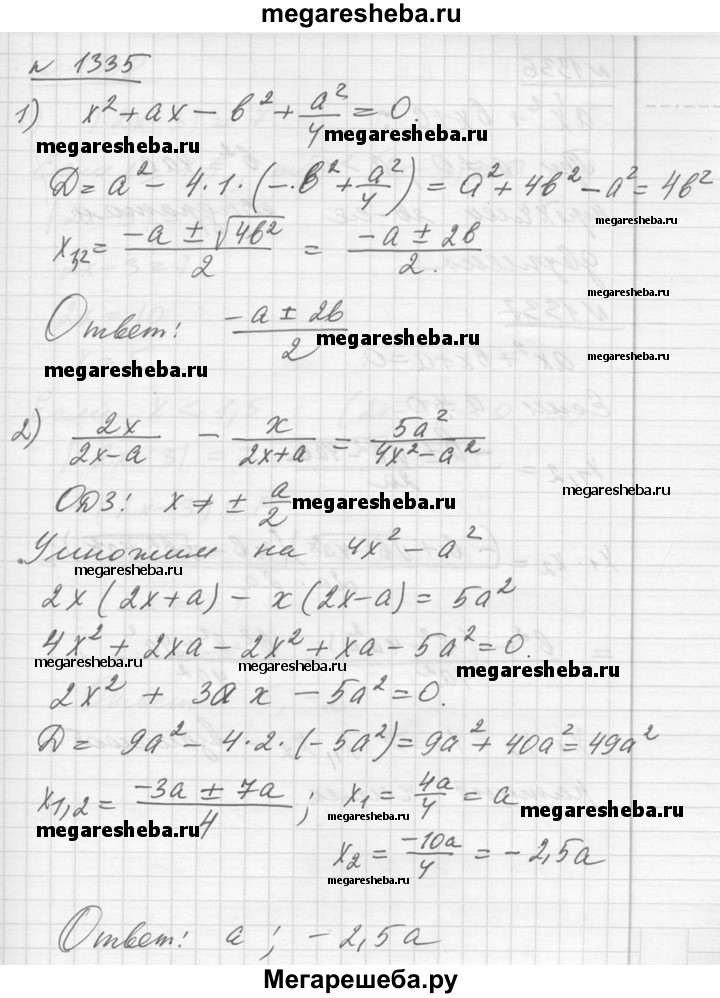 megaresheba.ru
№ 1335
1) x² + ax − b² + a²/4 = 0.
megaresheba.ru megaresheba.ru
D = a² − 4·1·(−b² + a²/4) = a² + 4b² − a² = 4b²
megaresheba.ru
x₁,₂ = (−a ± √4b²)/2 = (−a ± 2b)/2.
Ответ: (−a ± 2b)/2
megaresheba.ru
megaresheba.ru megaresheba.ru
2) 2x/(2x−a) − x/(2x+a) = 5a²/(4x²−a²)
megaresheba.ru
ОДЗ: x ≠ ± a/2
megaresheba.ru
Умножим на 4x² − a²
megaresheba.ru
2x(2x+a) − x(2x−a) = 5a²
4x² + 2xa − 2x² + xa − 5a² = 0.
megaresheba.ru megaresheba.ru megaresheba.ru
2x² + 3ax − 5a² = 0.
D = 9a² − 4·2·(−5a²) = 9a² + 40a² = 49a²
x₁,₂ = (−3a ± 7a)/4; x₁ = 4a/4 = a
megaresheba.ru megaresheba.ru megaresheba.ru
x₂ = −10a/4 = −2,5a
megaresheba.ru
Ответ: a; −2,5a
Мегарешеба.ру